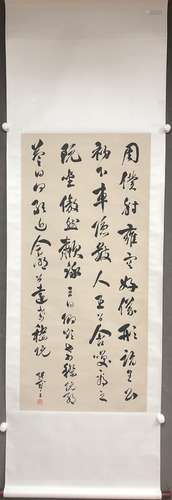 周僕射雍容好儀形詣王公
初下車隱數人王公含笑看之
既坐傲然嘯詠王曰卿欲希嵇阮邪
答曰何敢近舍明公遠希嵇阮